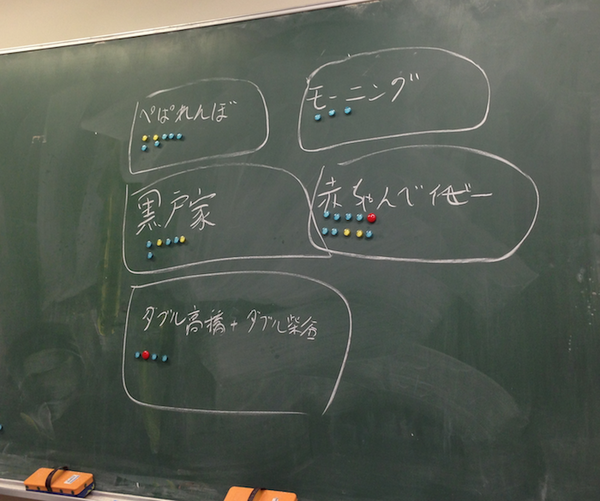 ぺぱれんぼ
モーニング
黒戸家
赤ちゃんでイビー
ダブル高橋+ダブル柴谷